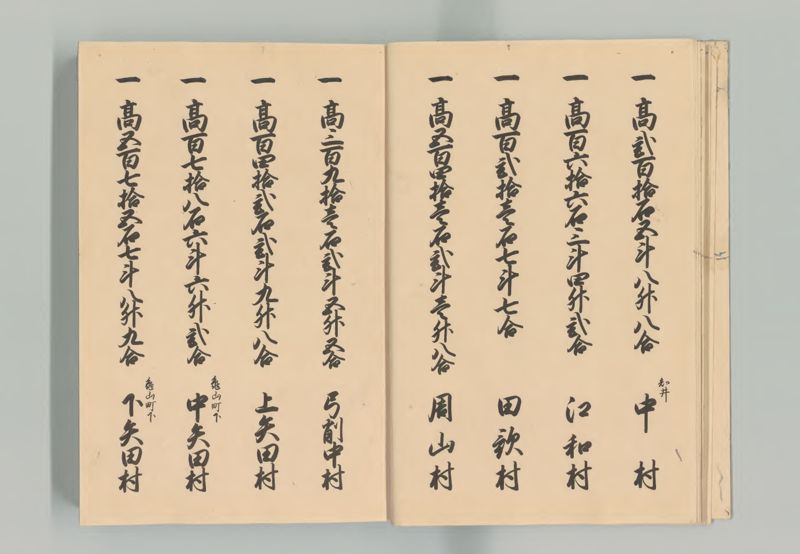 一 高弐百拾石五斗八舛八合 知井 中村
一 高百六拾六石三斗四舛弐合 江和村
一 高百弐拾壱石七斗七合 田歌村
一 高五百四拾壱石弐斗壱舛八合 周山村
一 高三百九拾壱石弐斗五舛五合 弓削中村
一 高百四拾弐石弐斗九舛八合 上矢田村
一 高百七拾八石六斗六舛弐合 亀山町下 中矢田村
一 高五百七拾五石七斗八舛九合 亀山町下 下矢田村